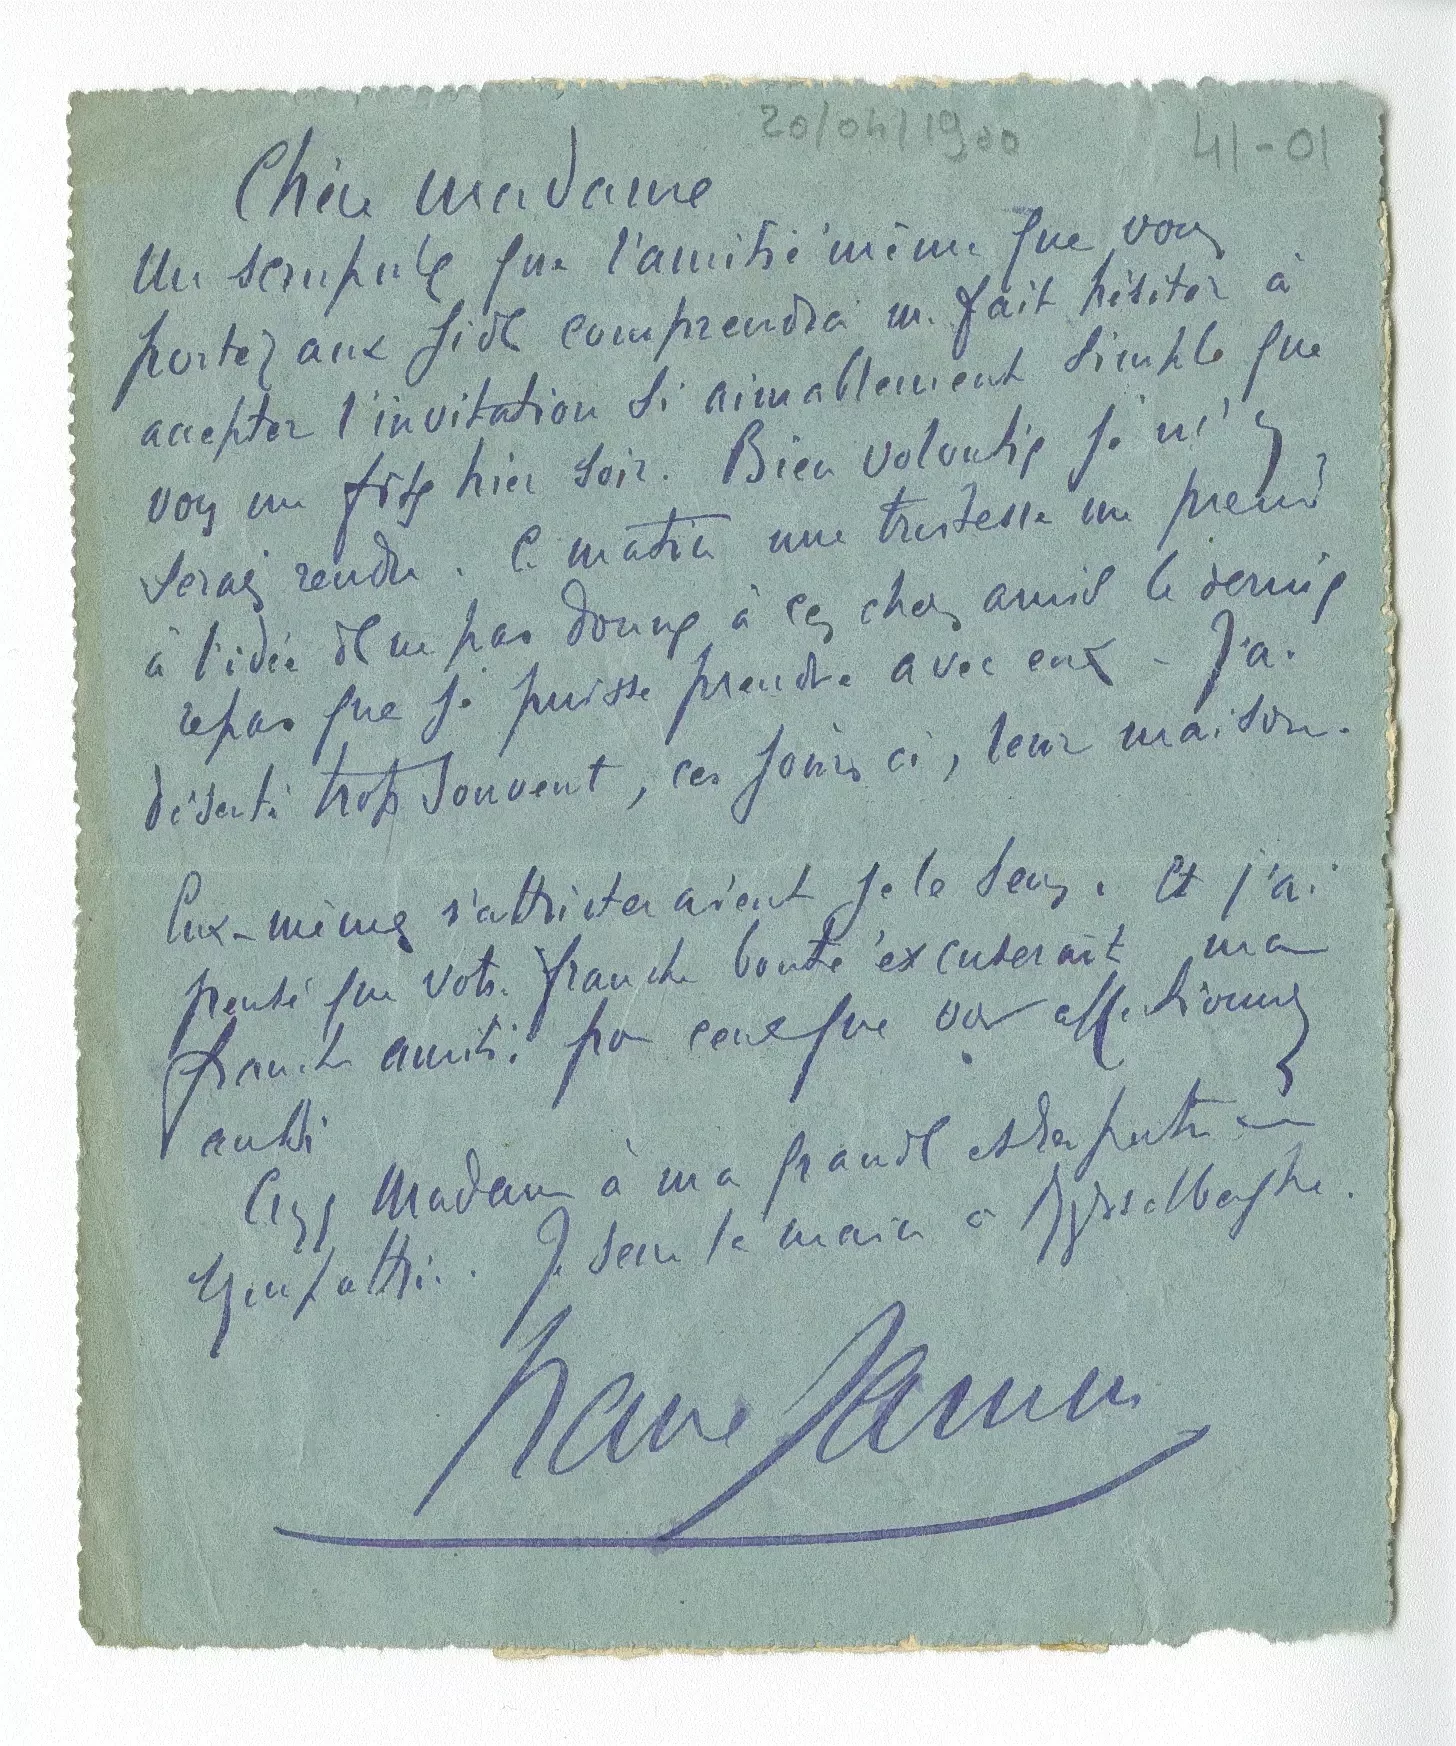 20/04/1900
41-01
Chère Madame
Un scrupule que l'amitié même que vous
portez aux Gide comprendra me fait hésiter à
accepter l'invitation si aimablement simple que
vous me fites hier soir. Bien volontiers je m'y
serais rendu. Ce matin une tristesse me prend
à l'idée de ne pas donner à ces chers amis le dernier
repas que je puisse prendre avec eux - J'ai
déserté trop souvent, ces jours ci, leur maison.
Eux-mêmes s'attristeraient je le sens. Et j'ai
pensé que votre franche bonté excuserait ma
franche amitié pour ceux que vous affectionnez
aussi
Croyez Madame à ma grande et respectueuse
sympathie. Je serre la main à Rysselberghe.
Francis Jammes